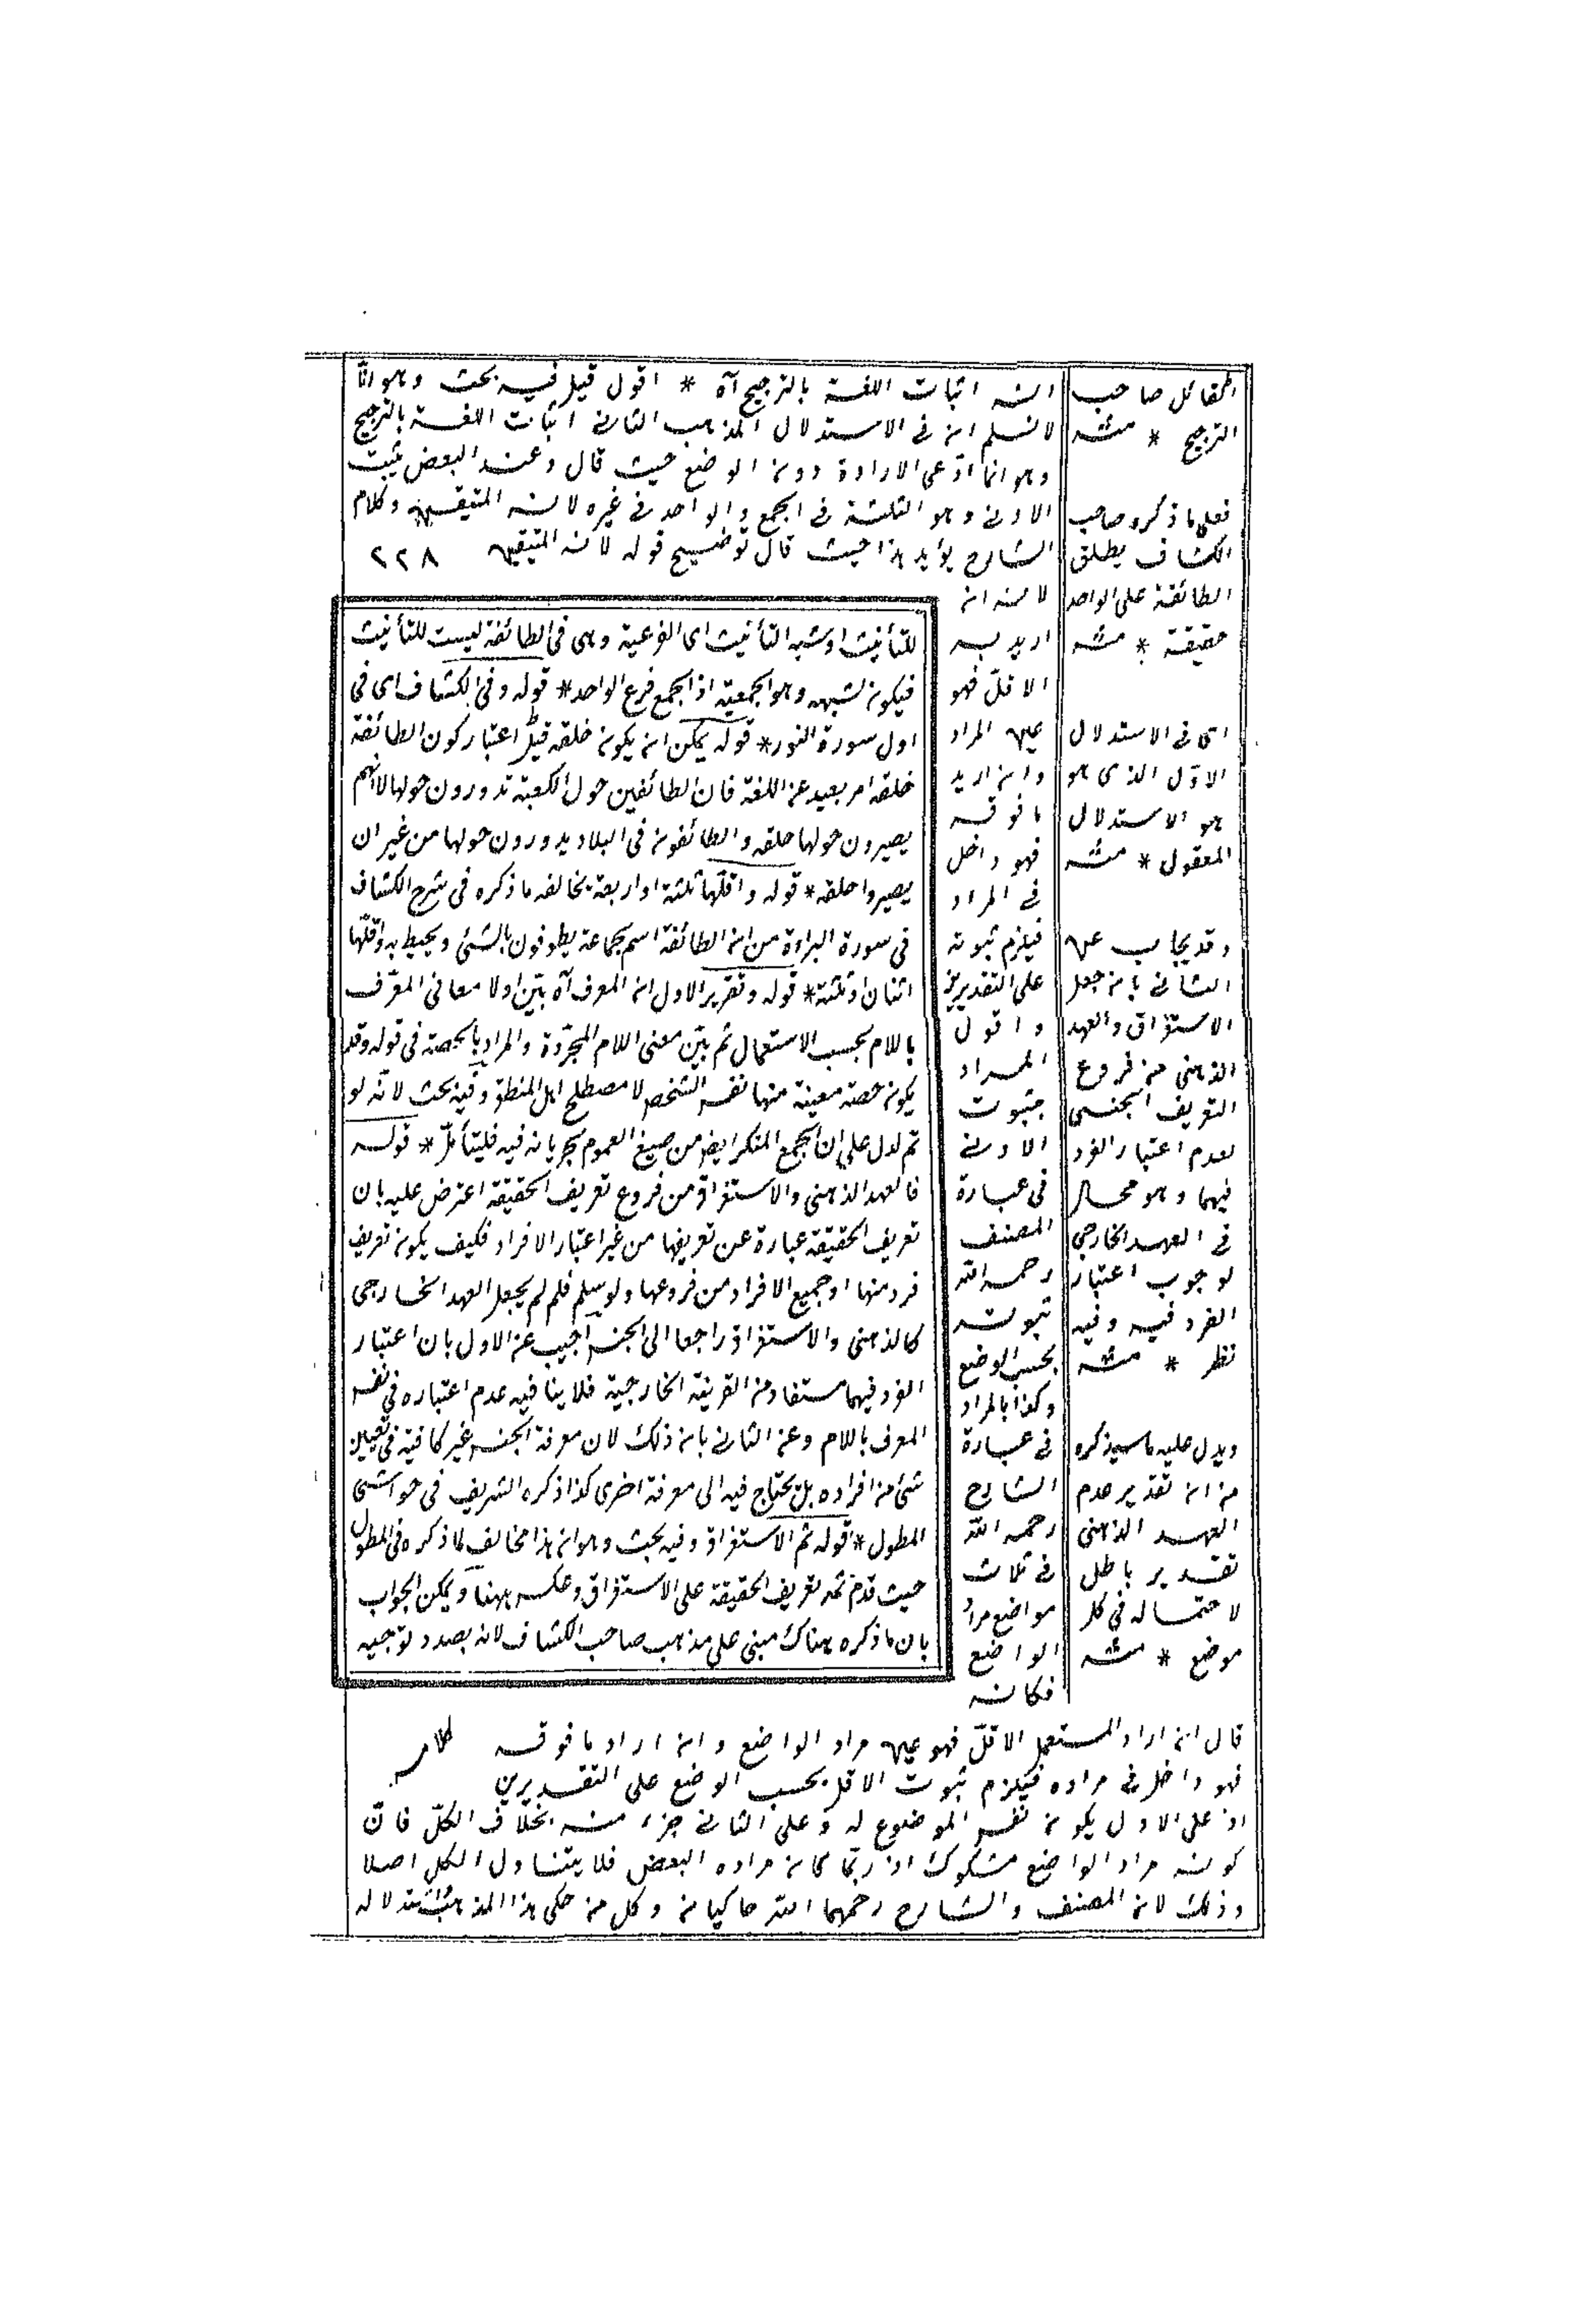 انه اثبات اللغة بالترجيح آه * اقول قيل فيه بحث وهو انا
لا نسلم ان فى الاستدلال المذهب الثانى اثبات اللغة بالترجيح
وهو انما ادعى الارادة دون الوضع حيث قال وعند البعض يثبت
الادنى وهو الثلثة فى الجمع والواحد فى غيره لانه المتيقن * وكلام
الشارح يؤيد هذا حيث قال توضيح قوله لانه المتيقن ٢٢٨
لانه ان
اريد به
الاقلّ فهو
عين المراد
وان اريد
ما فوقه
فهو داخل
فى المراد
فيلزم ثبوته
على التقديرين
واقول
المراد
بثبوت
الادنى
فى عبارة
المصنف
رحمه الله
ثبوته
بحسب الوضع
وكذا بالمراد
فى عبارة
الشارح
رحمه الله
فى ثلاث
مواضع مراد
الواضع
فكانه
قال ان اراد المستعمل الاقلّ فهو عين مراد الواضع وان اراد ما فوقه
فهو داخل فى مراده فيلزم ثبوت الاقل بحسب الوضع على التقديرين
اذ على الاول يكون نفس الموضوع له وعلى الثانى جزء منه بخلاف الكلّ فانّ
كونه مراد الواضع مشكوك اذ ربّما كان مراده البعض فلا يتناول الكل اصلا
وذلك لان المصنف والشارح رحمهما الله حاكيان وكل من حكى هذا المذهب استدلاله
للتأنيث او شبه التأنيث اى الفرعية وهى فى الطائفة ليست للتأنيث
فيكون لشبهه وهو الجمعية اذ الجمع فرع الواحد * قوله وفى الكشاف اى فى
اول سورة النور * قوله يمكن ان يكون حلقه قيل اعتبار كون الطائفة
حلقة امر بعيد عن اللغة فان الطائفين حول الكعبة تدورون حولها لا انهم
يصيرون حولها حلقه والطائفون فى البلاد يدورون حولها من غير ان
يصيروا حلقه * قوله واقلّها ثلثة او اربعة يخالفه ما ذكره فى شرح الكشاف
فى سورة البراءة من ان الطائفة اسم لجماعة يطوفون بالشئ ويحيط به واقلّها
اثنان او ثلثة * قوله وتقرير الاول ان المعرف آه بيّن اولا معانى المعرّف
باللام بحسب الاستعمال ثم بيّن معنى اللام المجرّدة والمراد بالحصة فى قوله وقد
يكون حصة معينة منها نفس الشخص لا مصطلح اهل المنطق وفيه بحث لانّه لو
تم لدل على ان الجمع المنكر ايضا من صيغ العموم لجريانه فيه فليتأمّل * قوله
فالعهد الذهنى والاستغراق من فروع تعريف الحقيقة اعترض عليه بان
تعريف الحقيقة عبارة عن تعريفها من غير اعتبار الافراد فكيف يكون تعريف
فرد منها او جميع الافراد من فروعها ولو سلم فلم لم يجعل العهد الخارجى
كالذهنى والاستغراق راجعا الى الجنس اجيب عن الاول بان اعتبار
الفرد فيهما مستفاد من القرينة الخارجية فلا ينافيه عدم اعتباره فى نفس
المعرف باللام وعن الثانى بان ذلك لان معرفة الجنس غير كافية فى تعيين
شئ من افراده بل يحتاج فيه الى معرفة اخرى كذا ذكره الشريف فى حواشى
المطول * قوله ثم الاستغراق وفيه بحث وهو ان هذا مخالف لما ذكره فى المطول
حيث قدم ثمه تعريف الحقيقة على الاستغراق وعكس ههنا ويمكن الجواب
بان ما ذكره هناك مبنى على مذهب صاحب الكشاف لانه بصدد توجيه
كلامه
القائل صاحب
الترجيح * منه
فعلى ما ذكره صاحب
الكشاف يطلق
الطائفة على الواحد
حقيقة * منه
اى فى الاستدلال
الاول الذى هو
هو الاستدلال
المعقول * منه
وقد يجاب عن
الثانى بان جعل
الاستغراق والعهد
الذهنى من فروع
التعريف الجنسى
لعدم اعتبار الفرد
فيهما وهو محال
فى العهد الخارجى
لوجوب اعتبار
الفرد فيه وفيه
نظر * منه
ويدل عليه ما سيذكره
من ان تقدير عدم
العهد الذهنى
تقدير باطل
لاحتماله فى كل
موضع * منه